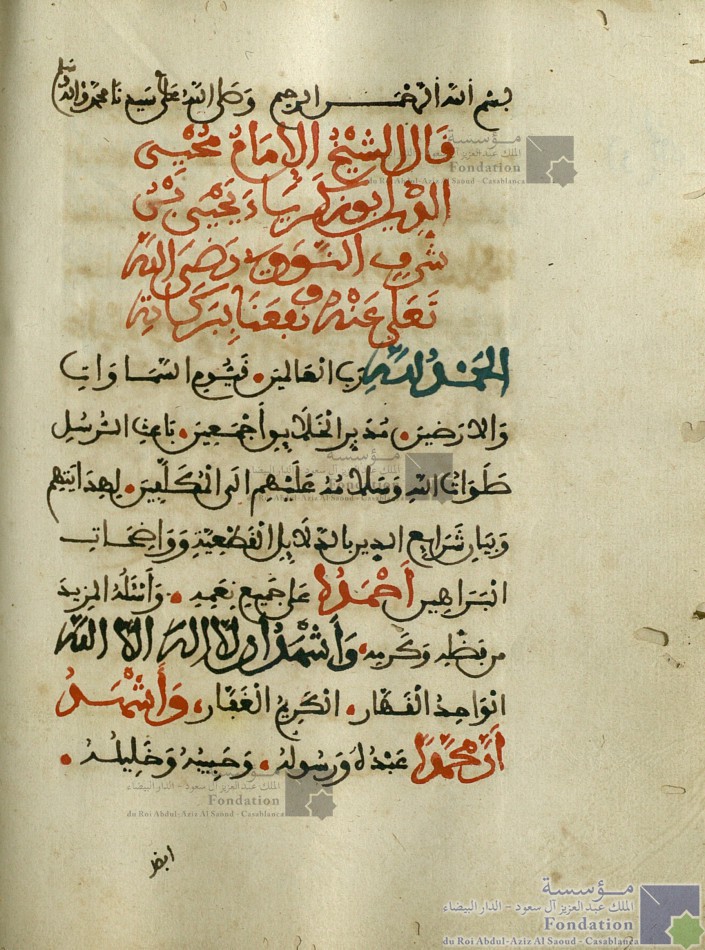 بسم الله الرحمن الرحيم وصلى الله على سيدنا محمد وآله وسلم
قال الشيخ الإمام محيي
الدين أبو زكرياء يحيى بن
شرف النووي رضي الله
تعالى عنه ونفعنا ببركاته
الحمد لله رب العالمين قيوم السماوات
والارضين مدبر الخلائق أجمعين باعث الرسل
صلوات الله وسلامه عليهم الى المكلفين لهدايتهم
وبيان شرايع الدين بالدلايل القطعية وواضحات
البراهين أحمده على جميع نعمه وأسئله المزيد
من فضله وكرمه وأشهد أن لا إله إلا الله
الواحد القهار الكريم الغفار وأشهد
أن محمدا عبده ورسوله وحبيبه وخليله
افضل
مؤسسة
الملك عبد العزيز آل سعود - الدار البيضاء
Fondation
du Roi Abdul-Aziz Al Saoud - Casablanca